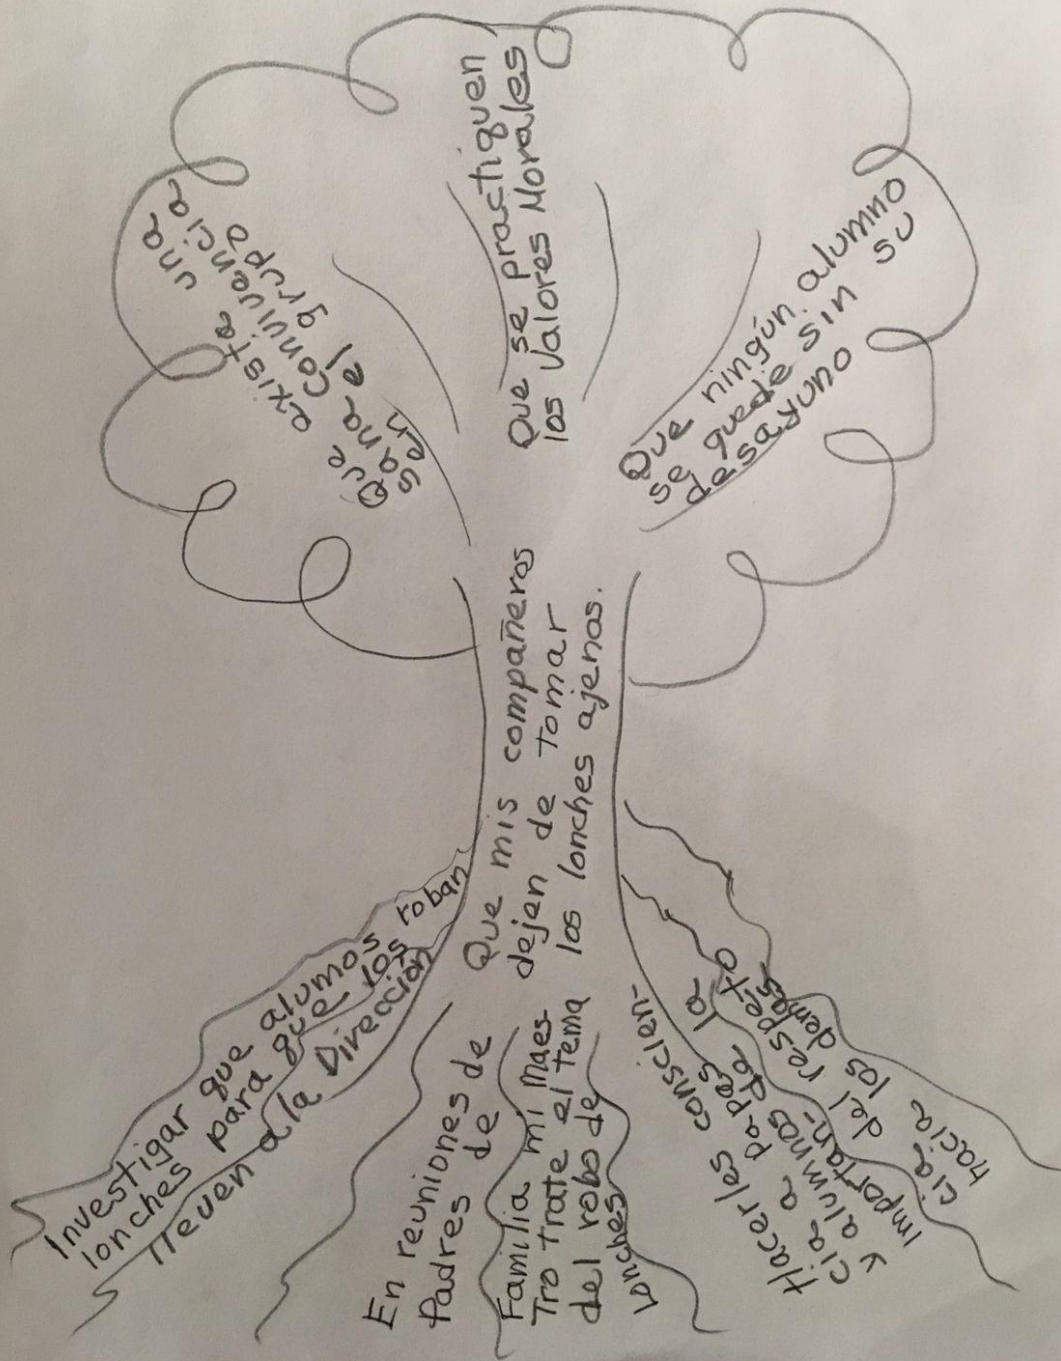 Que exista una
sana convivencia
en el grupo
Que se practiquen
los Valores Morales
Que ningún alumno
se quede sin su
desayuno
Que mis compañeros
dejen de tomar
los lonches ajenos.
Investigar que alumos roban
lonches para que los
lleven a la Dirección
En reuniones de
Padres de
Familia mi Maes-
Tro trate el tema
del robo de
lonches
Hacerles conscien-
cia a papas
y alumnos de la
importan-
cia del respeto
hacia los demas